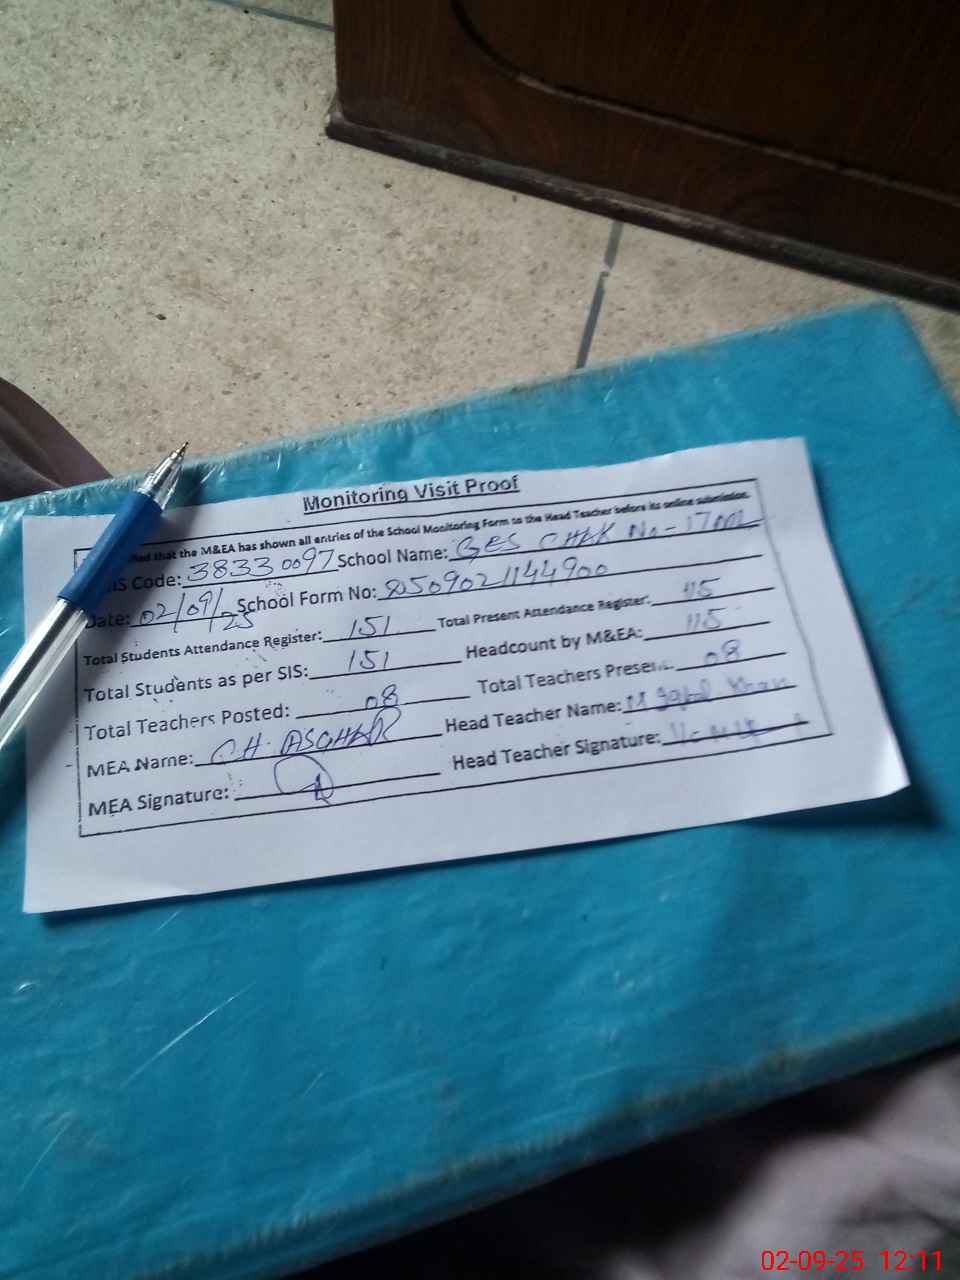 Monitoring Visit Proof
that the M&EA has shown all entries of the School Monitoring Form to the Head Teacher before its online submission.
Code: 38330097 School Name: GES CHAK No-17
Date: 02/09/25 School Form No: 
Total Students Attendance Register: 151 Total Present Attendance Register: 115
Total Students as per SIS: 151 Headcount by M&EA: 115
Total Teachers Posted: 08 Total Teachers Present: 08
MEA Name: CH. ASGHAR Head Teacher Name: M Khan
MEA Signature: Head Teacher Signature:
02-09-25 12:11